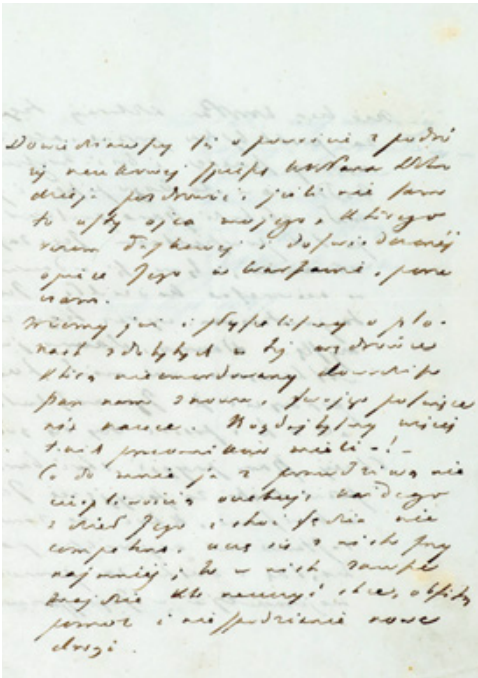 Dowiedziawszy się o powrocie z podró
ży naukowej
pozdrowić, jeśli nie sam
to ojca mojego, którego
i doświadczonej
opiece Jego w Warszawie,
czam.
Wiemy już i słyszeliśmy o plo-
nach zdobytych w tej wędrówce
którą niezmordowany
pan nam znowu, swojego poświęce
nauce. Bogdajbyśmy więcej
takich pracowników mieli - ! -
Co do mnie ja z prawdziwą nie
cierpliwością oczekuję każdego
z dzieł Jego, i choć sędzia nie
competens, uczę się z nich przy
najmniej; bo w nich zawsze
znajdzie kto nauczyć chce, obfitą
pomoc i niespodzianie nowe
drogi.